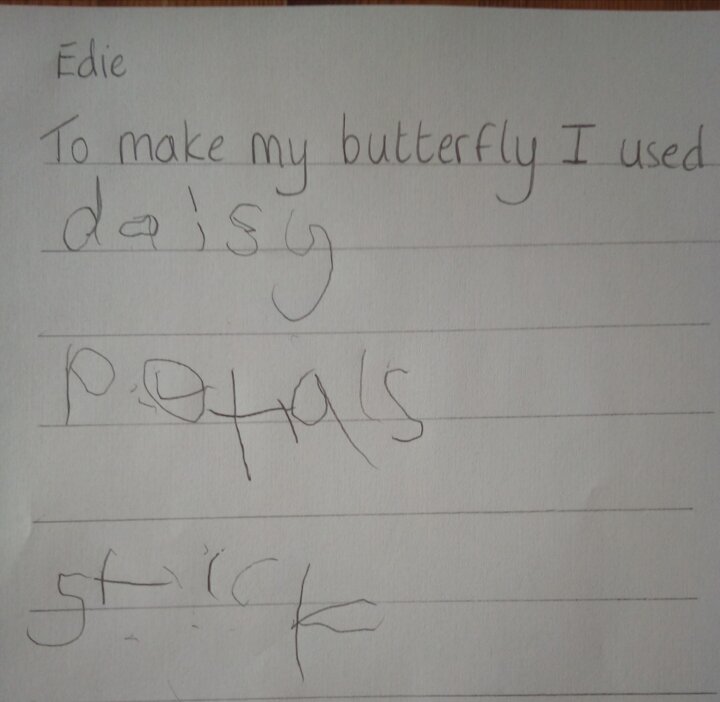 Edie
To make my butterfly I used
daisy
petals
stick